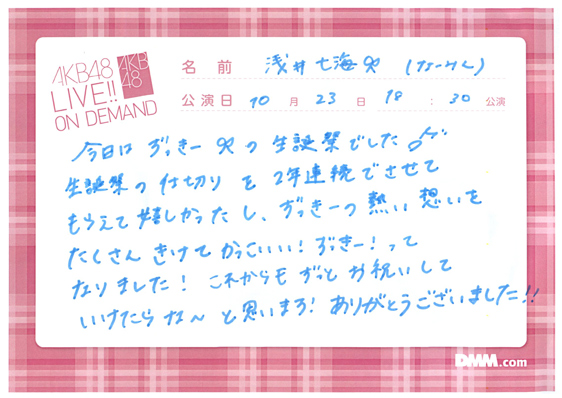 AKB48
LIVE!!
ON DEMAND
AKB
48
名前 浅井七海 (なーみん)
公演日 10月23日 18:30公演
今日はずっきーの生誕祭でした
生誕祭の仕切りを2年連続でさせて
もらえて嬉しかったし、ずっきーの熱い想いを
たくさんきけてかっこいい!ずっきー!って
なりました! これからもずっとお祝いして
いけたらな〜と思いまる! ありがとうございました!!
DMM.com